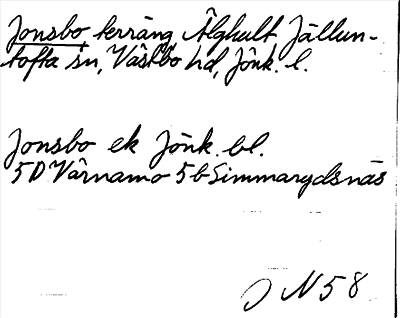 Jonsbo terräng Älghult Jällun-
tofta sn, Västbo hd, Jönk. l.
Jonsbo ek Jönk. bl.
5D Värnamo 5b Simmarydsnäs
JN 58